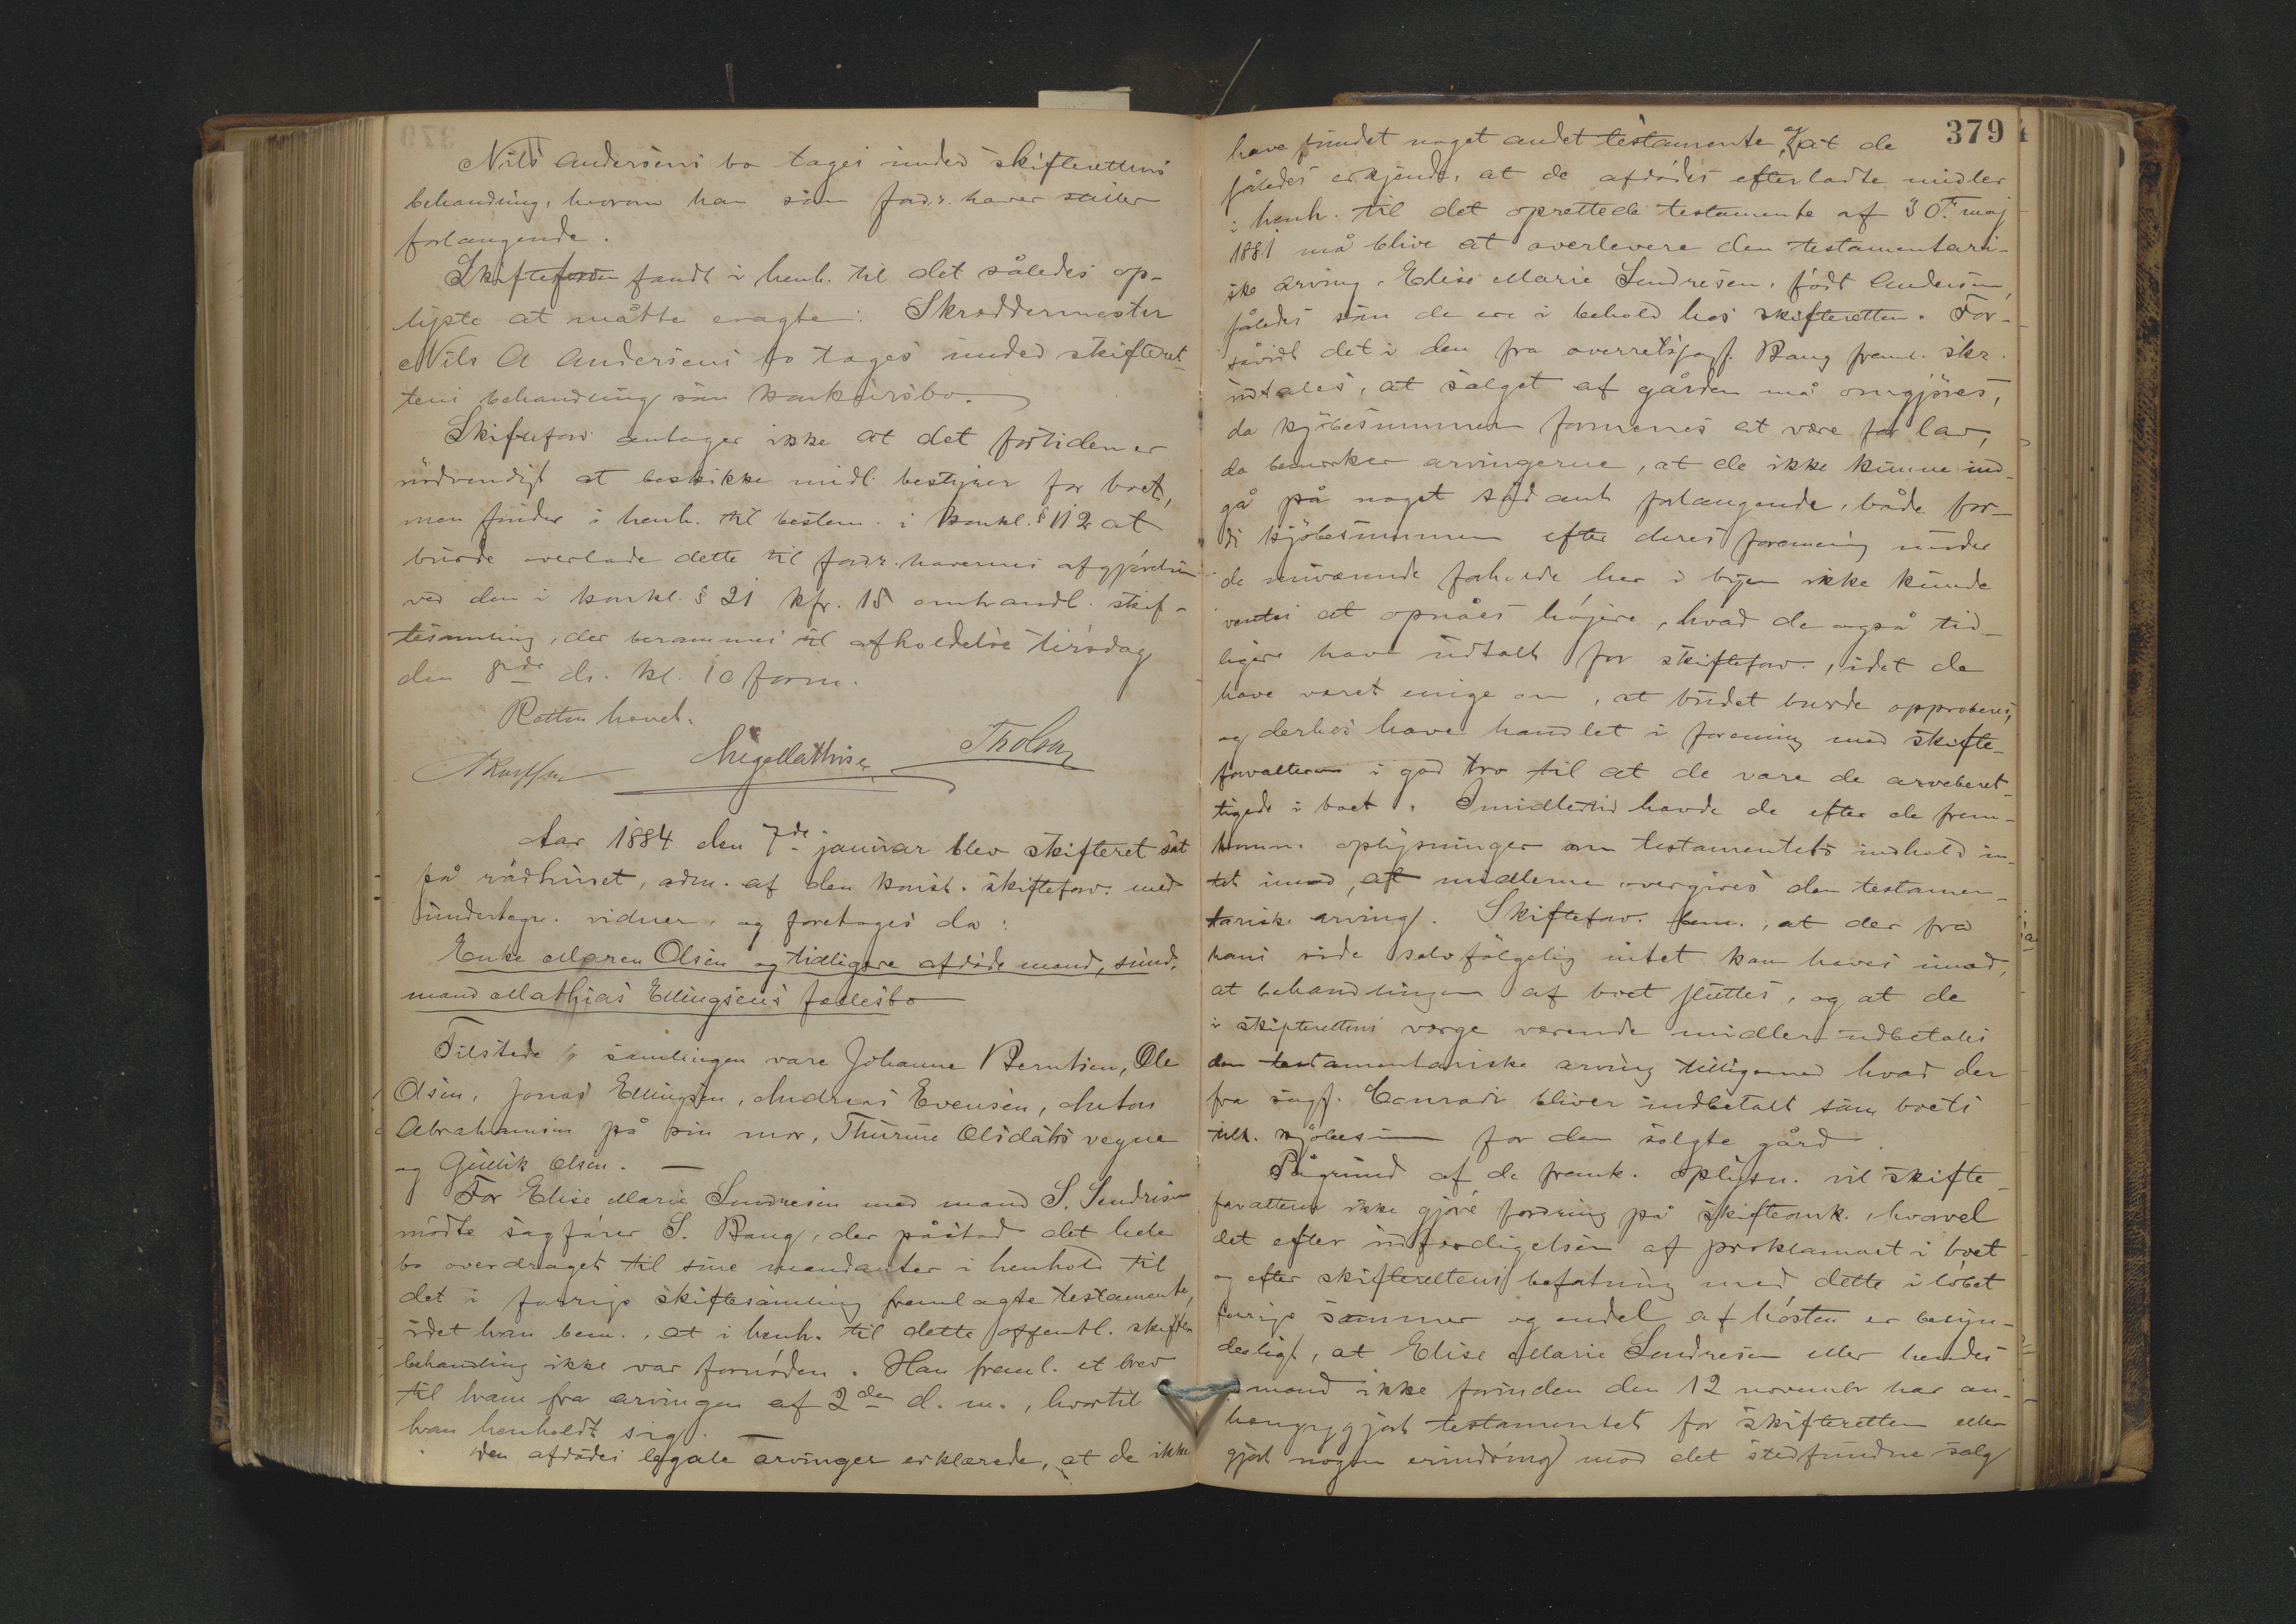 Nils Andersens bo tages under skifterettens
behandling, hvorom han som ford.haver stiller
forlangende.
Skifteforv. fandt i henh. til det således op-
lyste at måtte eragte: Skræddermester
Nils A Andersens bo tages under skifteret-
tens behandling som konkursbo.
Skifteforv. antager ikke at det fortiden er
nödvendigt at beskikke midl. bestyrer for boet,
men finder i henh. til bestem. i konkl. § 112 at
burde overlade dette til fordr.havernes afgjörelse
ved den i konkl. § 21 kfr. 15 omhandl. skif-
tesamling, der berammes til afholdelse tirsdag
den 8de ds. kl. 10 form.
Retten hævet.
Aar 1884 den 7de januar blev skifteret sat
på rådhuset, adm. af den konst. skifteforv. med
undertegn. vidner, og foretoges da:
Enke Maren Olsen og tidligere afdöde mand, sund-
mand Mathias Ellingsens fællesbo
Tilstede i samlingen vare Johanne Berntsen, Ole
Olsen, Jonas Ellingsen, Andreas Evensen, Anton
Abrahamsen på sin mor, Thurine Olsdatrs vegne
og Gullik Olsen. —
For Elise Marie Sendresen med mand S. Sendresen
mödte sagförer S. Bang, der påstod det hele
bo overdraget til sine mandanter i henhold til
det i forrige skiftesamling fremlagte testamente,
idet han bem., at i henh. til dette offentl. skifte-
behandling ikke var fornöden. Han freml. et brev
til ham fra arvingen af 2den d. m., hvortil
han henholdt sig. —
Den afdödes legale arvinger erklærede, at de ikke
379
have fundet noget andet testamente, og at de
således erkjendte, at de afdödes efterladte midler
i henh. til det oprettede testamente af 30. maj
1881 må blive at overlevere den testamentari-
ske arving, Elise Marie Sendresen, födt Andersen,
således som de ere i behold hos skifteretten. For-
såvidt det i den fra overretssagf. Bang freml. skr.
udtales, at salget af gården må omgjöres,
da kjöbesummen formenes at være for lav,
da bemærker arvingerne, at de ikke kunne ind-
gå på noget sådant forlangende, både for-
di kjöbesummen efter deres formening under
de nuværende forholde her i byen ikke kunde
ventes at opnåes höjere, hvad de også tid-
ligere have udtalt for skifteforv., idet de
have været enige om, at budet burde approberes,
og derhos have handlet i forening med skifte-
forvalteren i god tro til at de vare de arveberet-
tigede i boet. Imidlertid havde de efter de frem-
komm. oplysninger om testamentets indhold in-
tet imod, at midlerne overgives den testamen-
tariske arving. Skifteforv. bem., at der fra
hans side selvfölgelig intet kan haves imod,
at behandlingen af boet sluttes, og at de
i skifterettens værge værende midler udbetales
den testamentariske arving tilligemed hvad der
fra sagf. Conradi bliver indbetalt som boets
tilk. kjöbesum for den solgte gård.
Pågrund af de fremk. oplysn. vil skifte-
forvalteren ikke gjöre fordring på skifteomk., hvorvel
det efter udfærdigelsen af proklamaet i boet
og efter skifterettens befatning med dette i löbet
forrige sommer og endel af hösten er besyn-
derligt, at Elise Marie Sendresen eller hendes
mand ikke forinden den 12 novembr har an-
hængiggjort testamentet for skifteretten eller
gjort nogen erindring mod det stedfundne salg